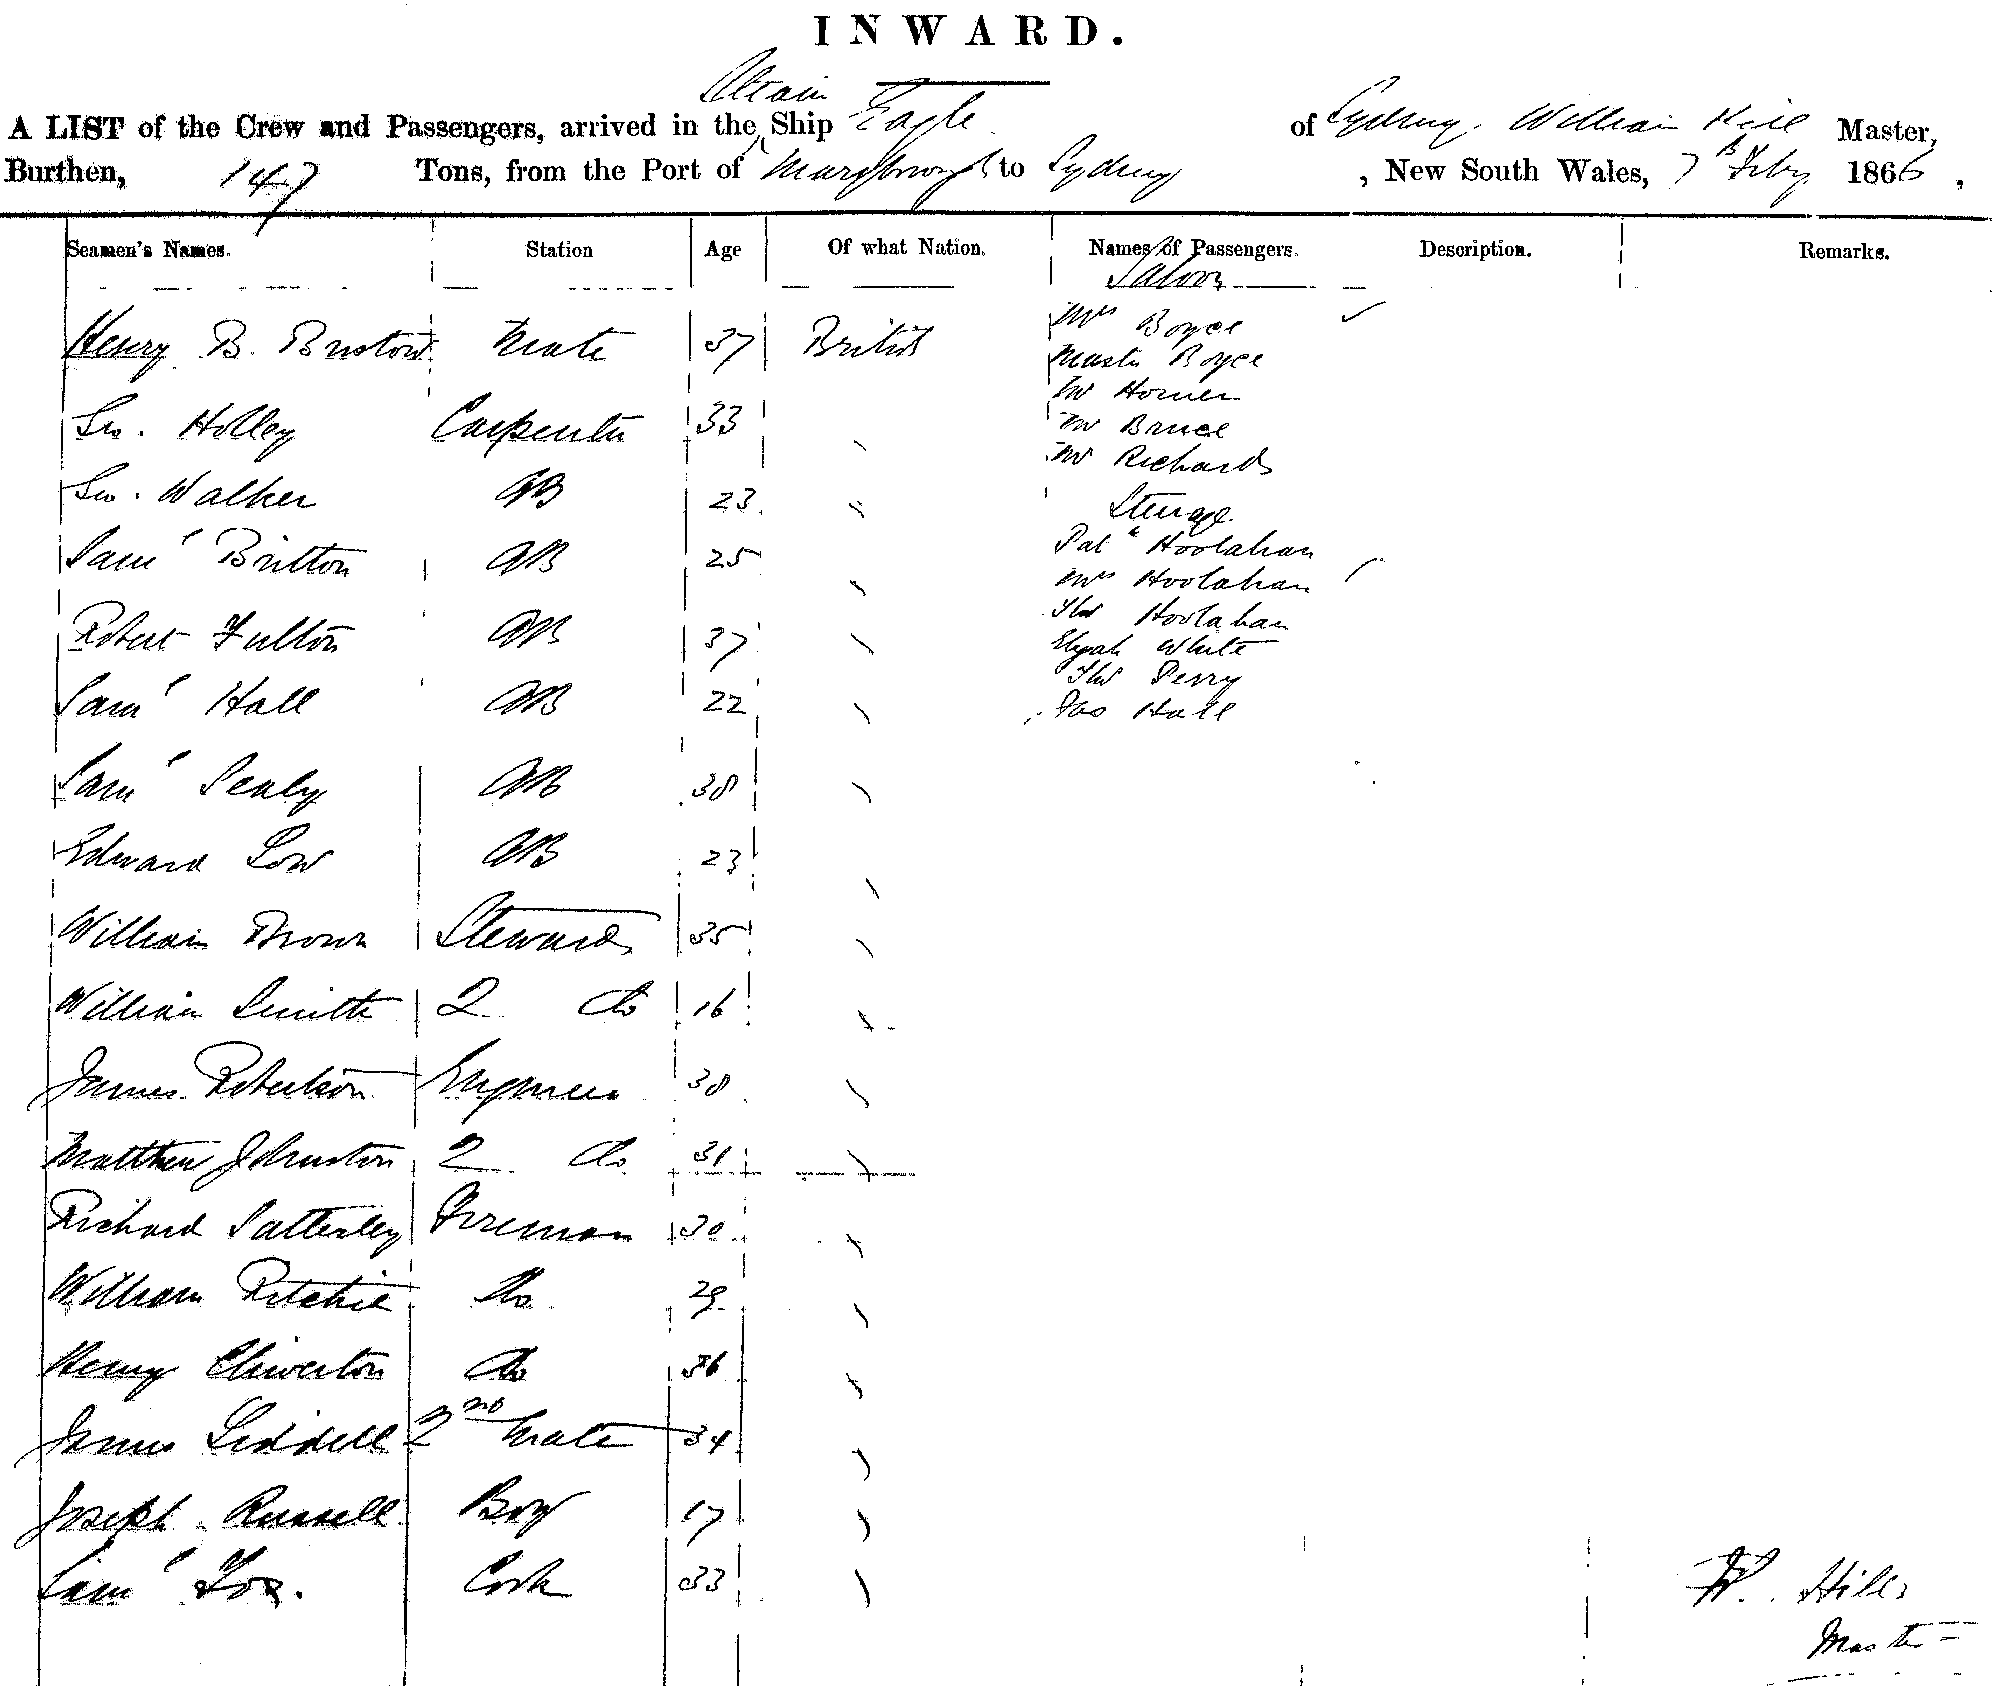 INWARD.
Steam
A LIST of the Crew and Passengers, arrived in the Ship Eagle of Sydney, William Hill Master,
Burthen, 147 Tons, from the Port of Maryborough to Sydney, New South Wales, 7th Feby 1866,
Seamen's Names. Station Age Of what Nation. Names of Passengers. Description. Remarks.
Saloon
Mrs Boyce
Henry B. Bristow Mate 37 British
Master Boyce
Mr Horner
Geo. Holley Carpenter 33
Mr Bruce
Mr Richards
Geo. Walker AB 23 "
Steerage
Saml Britton AB 25
Patk Hoolahan
Mrs Hoolahan
Thos Hoolahan
Robert Fulton AB 37
Elijah White
Thos Perry
Saml Hall AB 22
Jas Hall
Saml Sealy AB 38
Edward Low AB 23
William Brown Steward 35
William Smith 2 do 16
James Robertson Engineer 38
Matthew Johnston 2 do 31
Richard Satterley Fireman 30
William Ritchie do 29
Henry Chiverton do 36
James Liddell 2nd Mate 34
Joseph Russell Boy 17
Saml Fox. Cook 33
W. Hill
Master